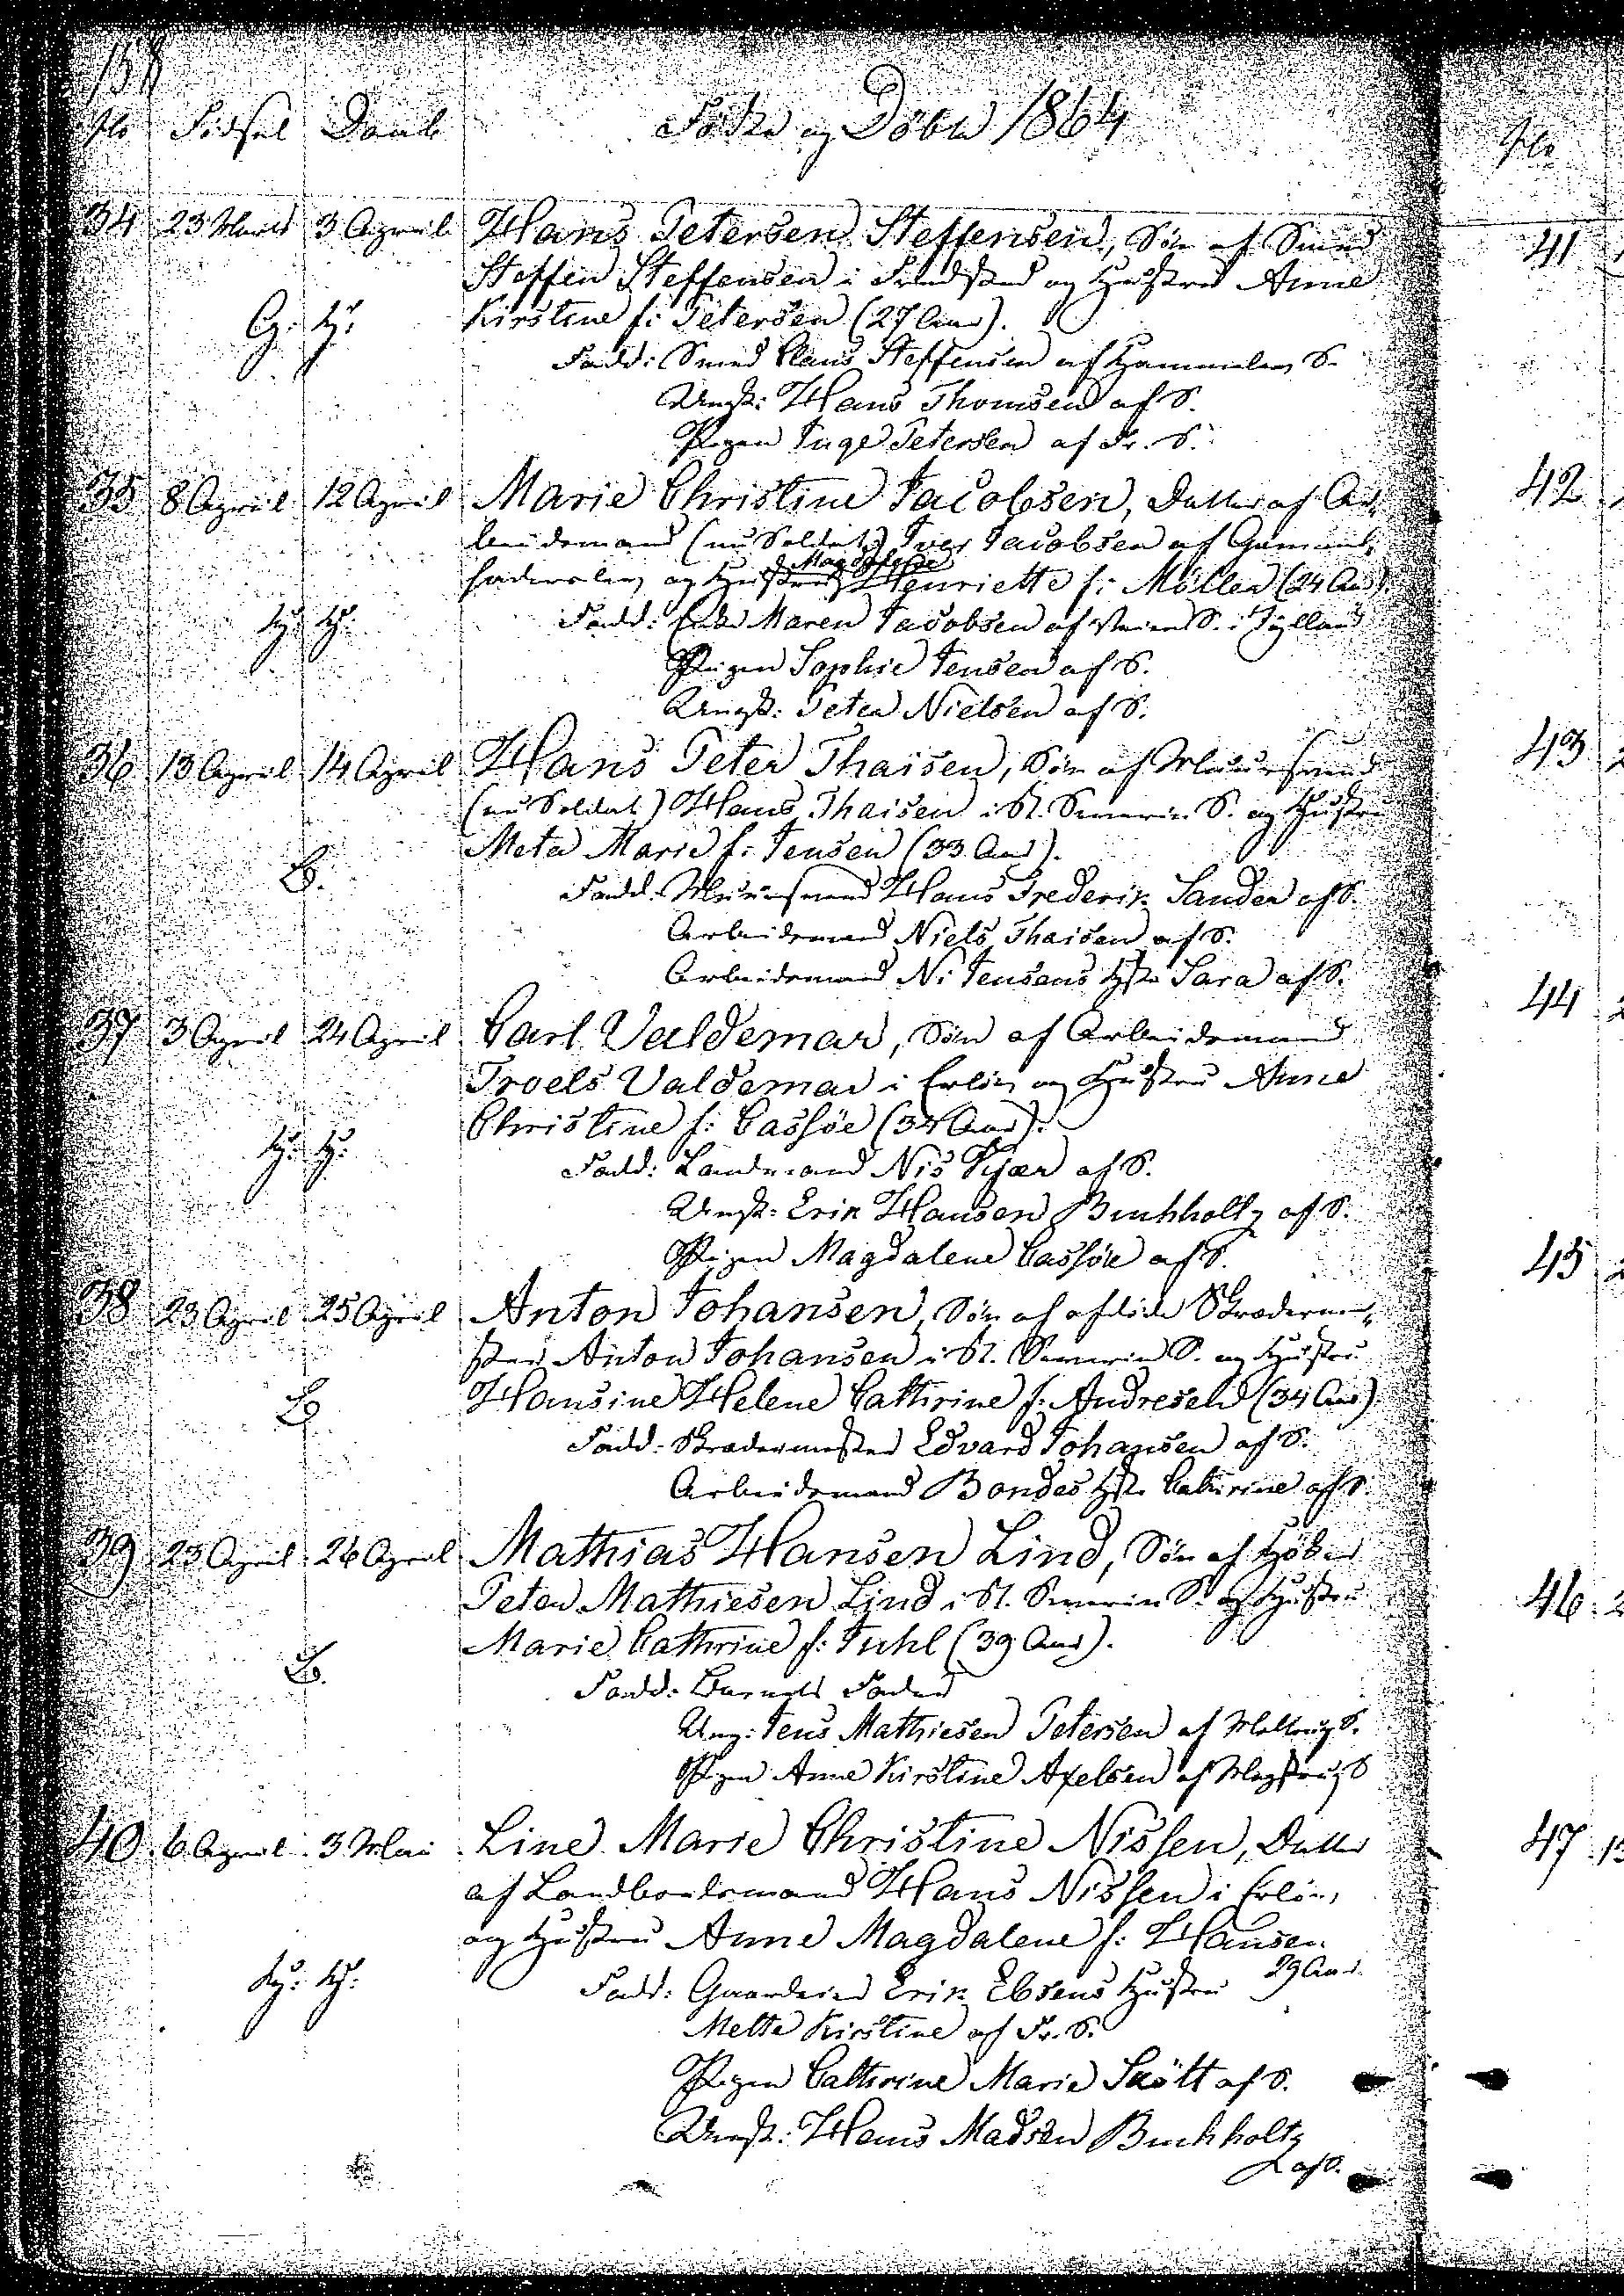 158
No Födsel Daab Födte og Döbte 1864
34 23 Marts 3 April Hans Petersen Steffensen, Sön af Smed
Steffen Steffensen i Fredsted og Hustru Anne
Kirstine f: Petersen (27 Aar).
Fadd: Smed Claus Steffensen af Hammelev S.
Ungk: Hans Thomsen af S.
Pigen Inge Petersen af Fr. S.
35 8 April 12 April Marie Christine Jacobsen, Datter af Ar-
beidsmand (nu Soldat) Iver Jacobsen af Gammel-
haderslev og Hustru Magdalene Henriette f: Möller (24 Aar).
Fadd: Enke Maren Jacobsen af S. i Jylland
Pigen Sophie Jensen af S.
Ungk: Peter Nielsen af S.
36 13 April 14 April Hans Peter Thaisen, Sön af Muursvend
(nu Soldat) Hans Thaisen i St. Severin S. og Hustru
Meta Marie f: Jensen (33 Aar).
B.
Fadd: Muursvend Hans Frederik Sander af S.
Arbeidsmand Niels Thaisen af S.
Arbeidsmand N: Jensens Hstr Sara af S.
37 3 April 24 April Carl Valdemar, Sön af Arbeidsmand
Troels Valdemar i Erlev og Hustru Anne
Christine f: Cassöe (34 Aar).
Fadd: Landmand Nis Kjær af S.
Ungk: Erik Hansen Buchholtz af S.
Pigen Magdalene Cassöe af S.
38 23 April 25 April Anton Johansen, Sön af afdöde Skræderme-
ster Anton Johansen i St. Severin S. og Hustru
Hansine Helene Cathrine f: Andresen (34 Aar).
B.
Fadd: Skrædermester Edvard Johansen af S.
Arbeidsmand Bondes Hstr Cathrine af S.
39 23 April 26 April Mathias Hansen Lind, Sön af Höker
Peter Mathiesen Lind i St. Severin S. og Hustru
Marie Cathrine f: Juhl (39 Aar).
B.
Fadd: Barnets Fader
Ung: Jens Mathiesen Petersen af S.
Pigen Anne Kirstine Axelsen af Magstrup S
40 6 April 3 Mai Line Marie Christine Nissen, Datter
af Landbolsmand Hans Nissen i Erlev,
og Hustru Anne Magdalene f: Hansen
29 Aar.
Fadd: Gaardeier Erik Ebsens Hustru
Mette Kirstine af Fr. S.
Pigen Cathrine Marie Skött af S.
Ungk: Hans Madsen Buchholtz
af S.
No
41
42
43
44
45
46
47